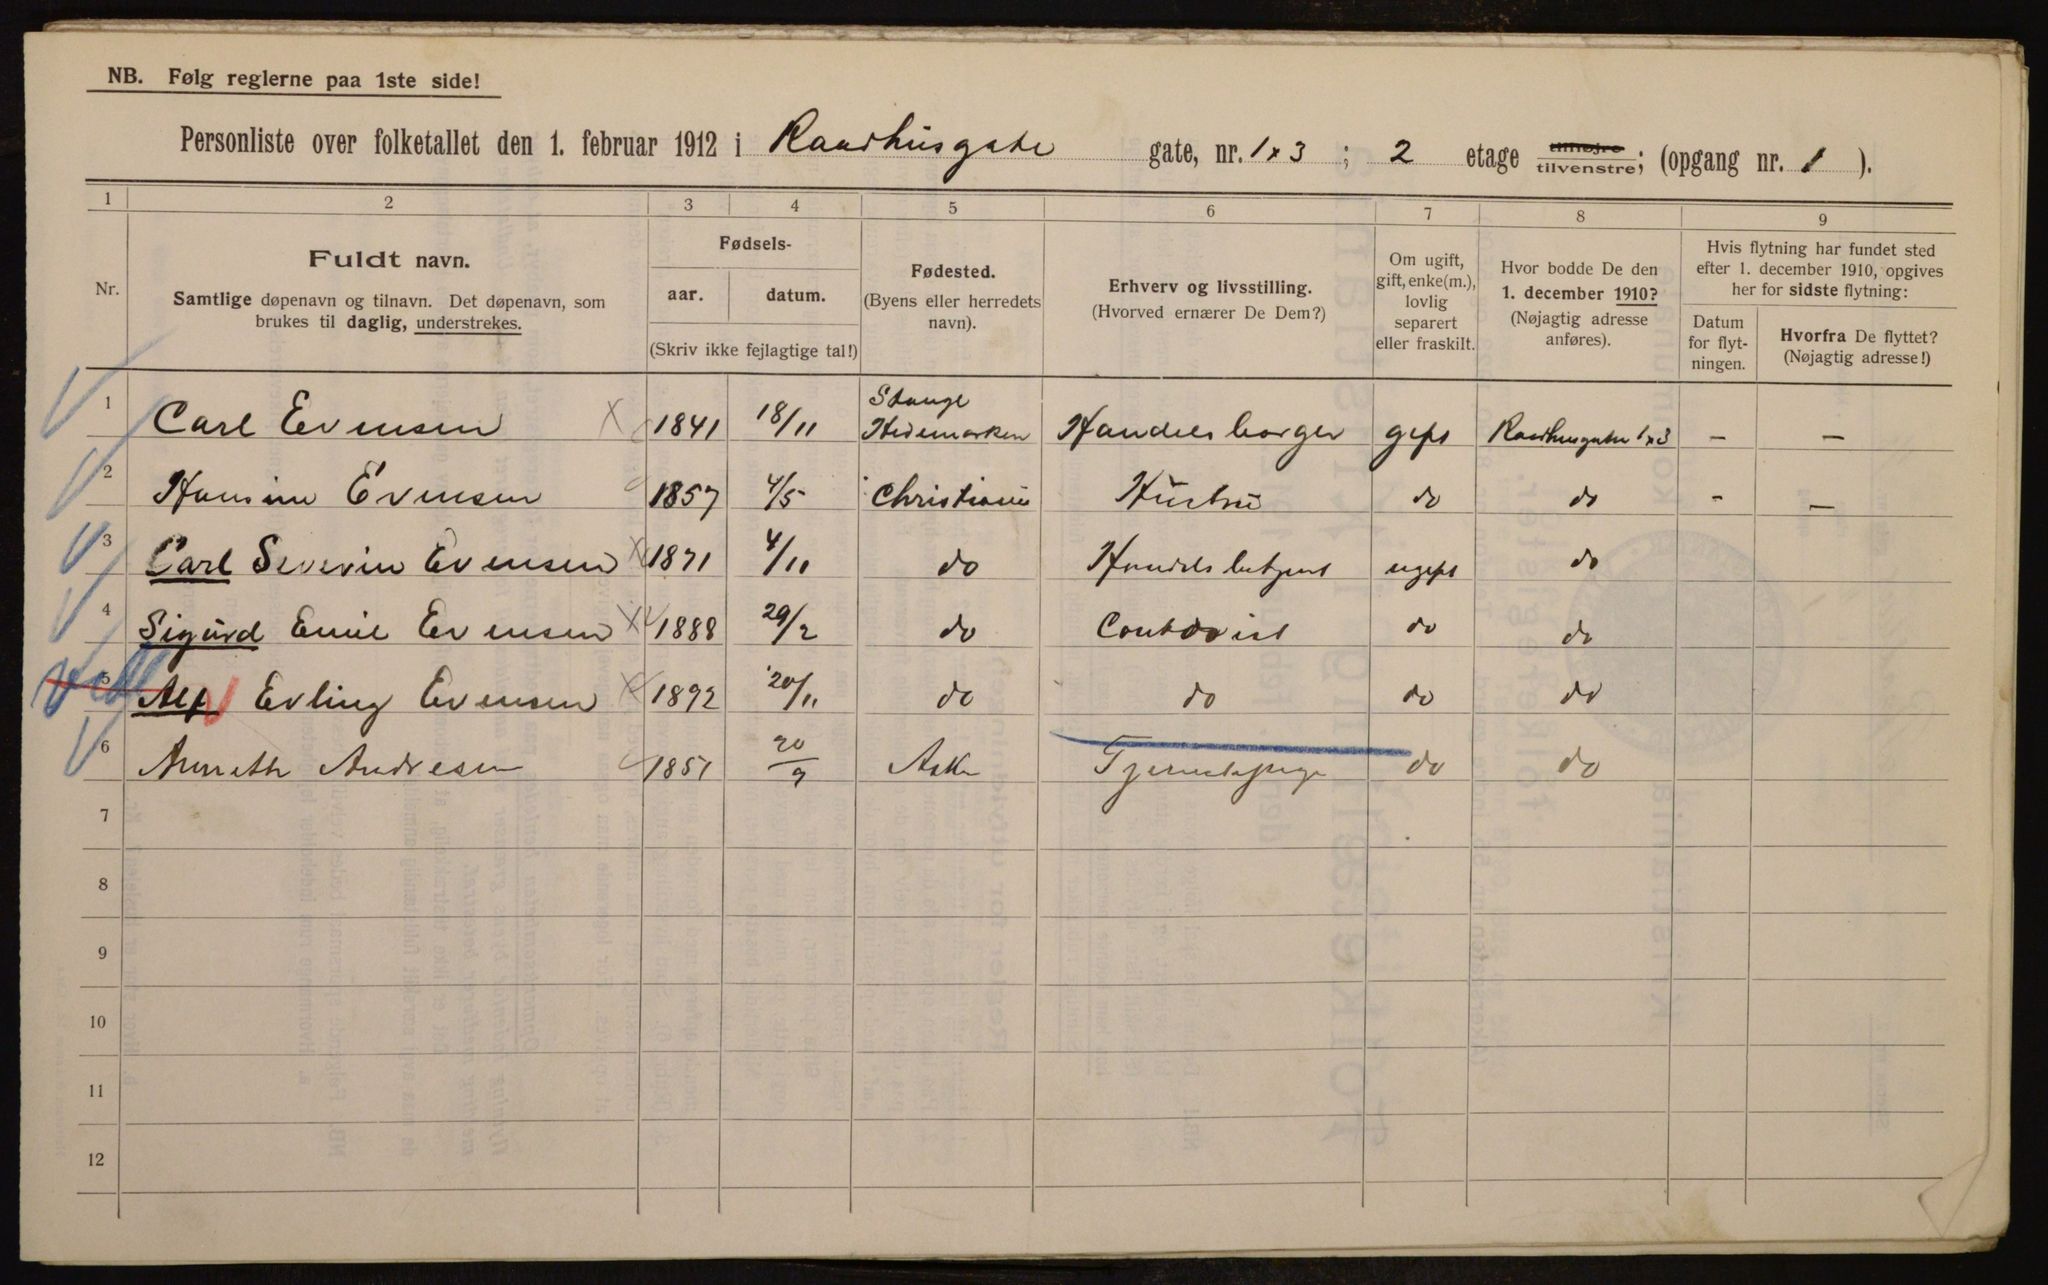 NB. Følg reglerne paa 1ste side!
Personliste over folketallet den 1. februar 1912 i Raadhusgate gate, nr. 1 x 3 ; 2 etage tilhøjre tilvenstre; (opgang nr. 1 ).
1 2 3 4 5 6 7 8 9
Nr.
Fuldt navn.
Samtlige døpenavn og tilnavn. Det døpenavn, som
brukes til daglig, understrekes.
Fødsels-
aar. datum.
(Skriv ikke fejlagtige tal!)
Fødested.
(Byens eller herredets
navn).
Erhverv og livsstilling.
(Hvorved ernærer De Dem?)
Om ugift,
gift, enke(m.),
lovlig
separert
eller fraskilt.
Hvor bodde De den
1. december 1910?
(Nøjagtig adresse
anføres).
Hvis flytning har fundet sted
efter 1. december 1910, opgives
her for sidste flytning:
Datum
for flyt-
ningen.
Hvorfra De flyttet?
(Nøjagtig adresse!)
1 Carl Evensen 1841 18/11 Stange Hedemarken Handelsborger gift Raadhusgaten 1 x 3 – –
2 Hansine Evensen 1857 4/5 Christiania Hustru do do - –
3 Carl Severin Evensen 1871 4/11 do Handelsbetjent ugift do
4 Sigurd Emil Evensen 1888 29/2 do Contorist do do
5 Alf Erling Evensen 1892 20/11 do do do do
6 Andresen 1851 20/9 Asker Tjenestepige do do
7
8
9
10
11
12